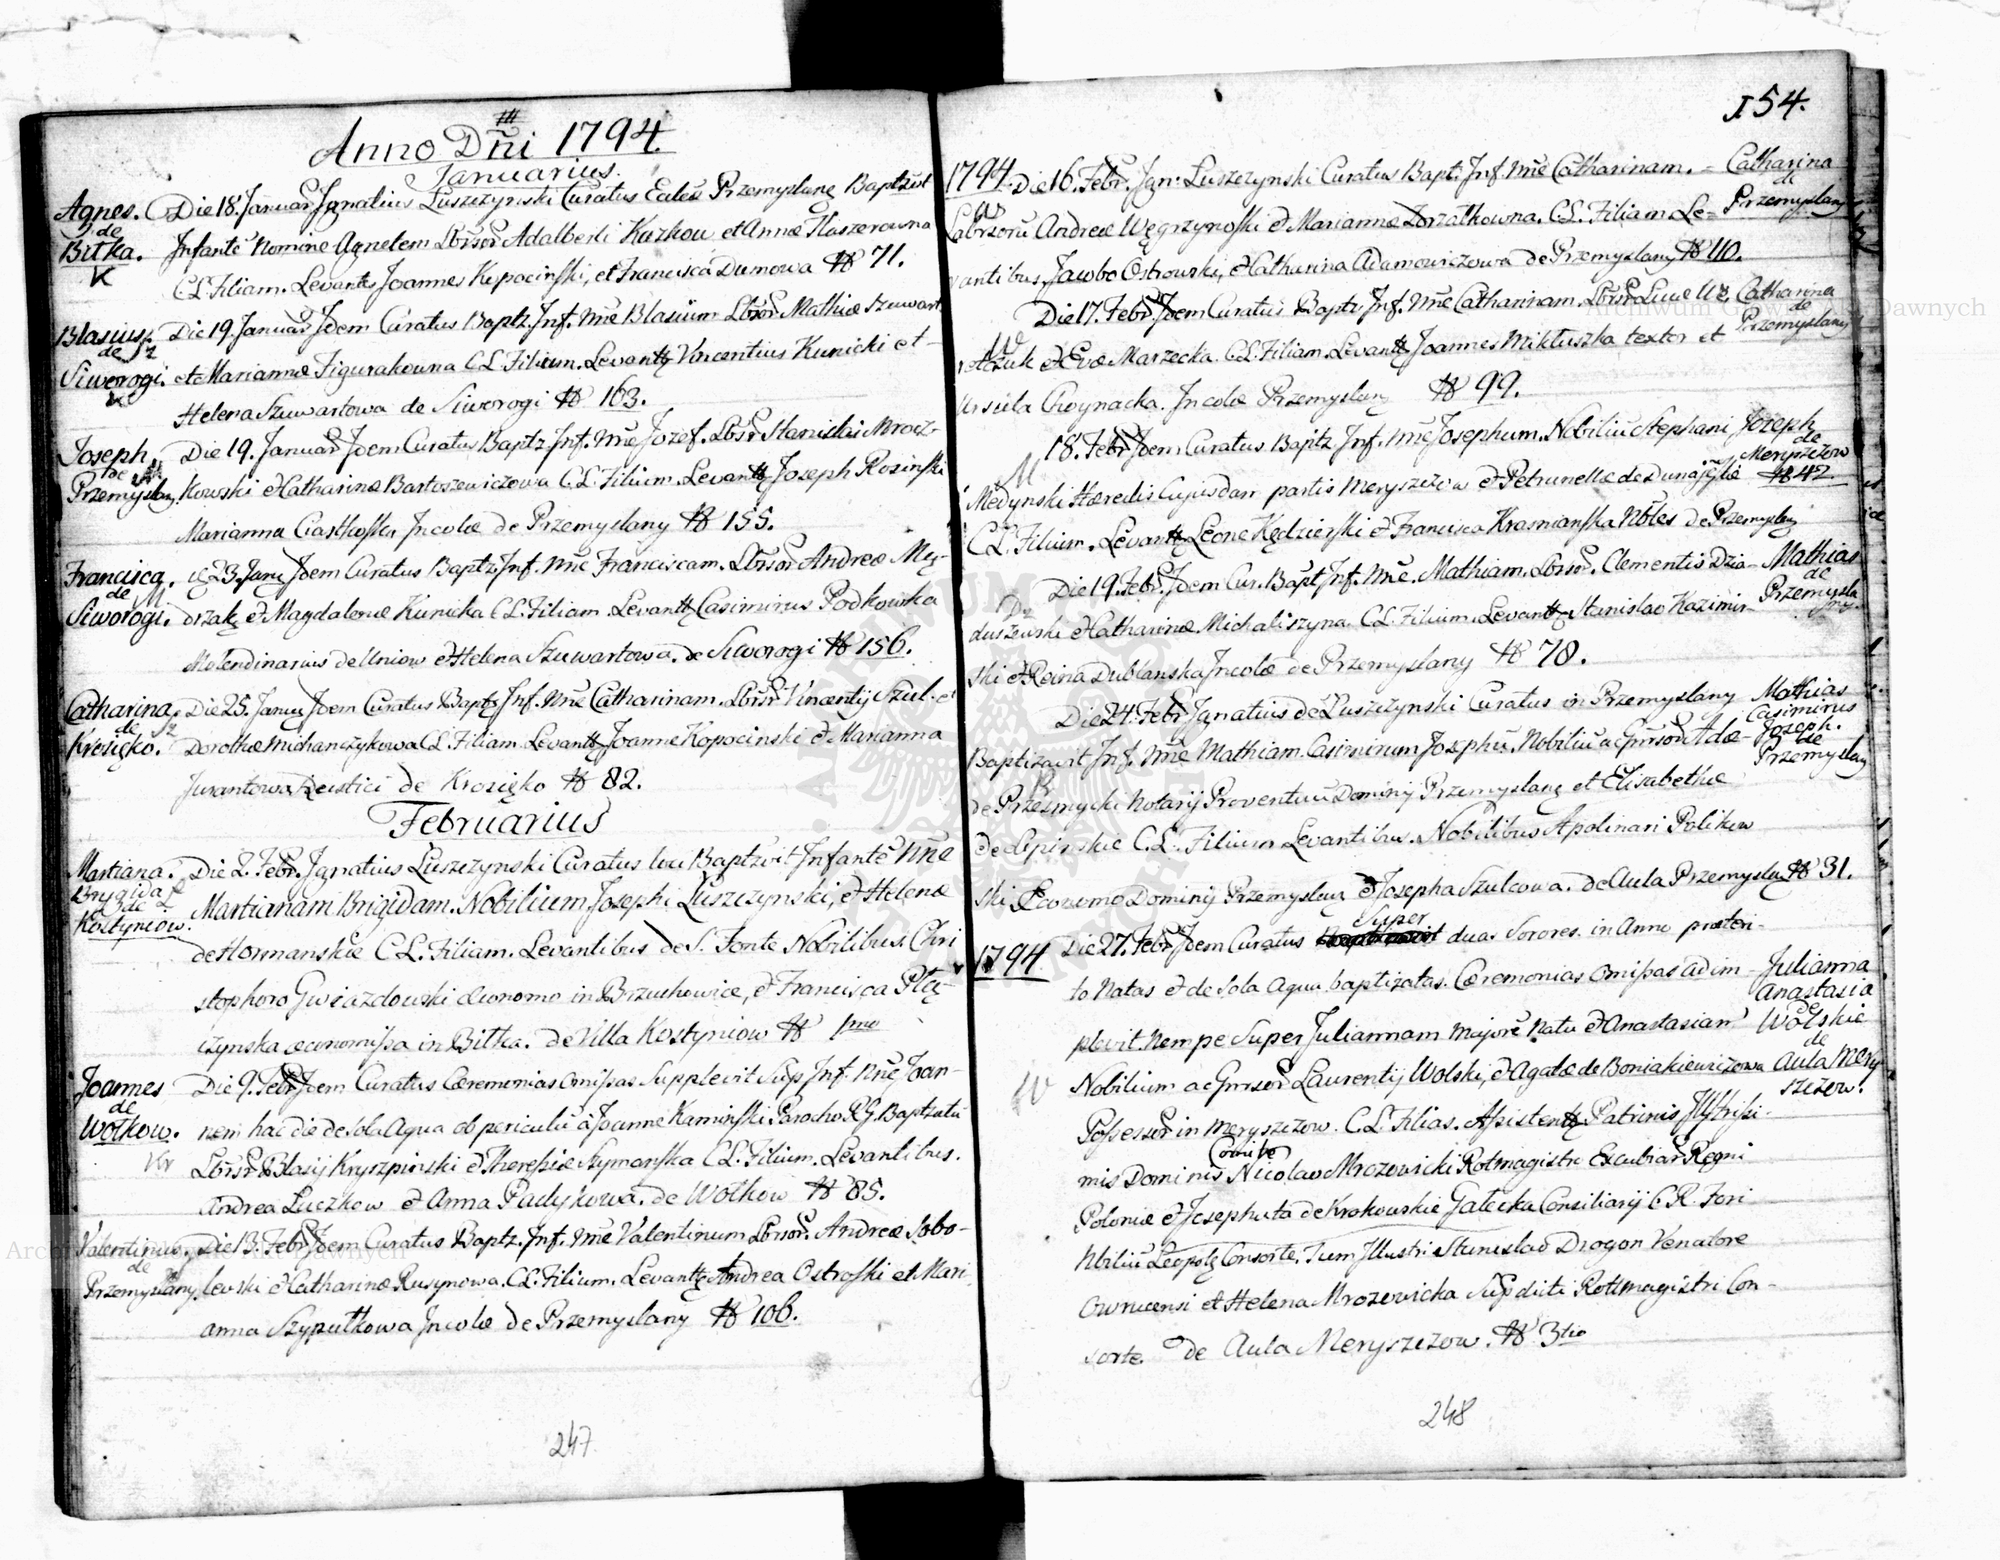 Anno Dñi 1794.
Januarius.
Agnes.
de
Bitka.
K
Die 18. Januar Ignatius Łuszczynski Curatus Eccles Przemyslanę Baptizvit
Infantē Nomine Agnetem Lbrsor Adalberti Kuzkow et Annæ Kaszerowna
C.L. Filiam. Levants Joannes Kopocinski, et Francisca Dumowa № 71.
Blasius
de Sz
Siworogi.
Die 19. Januar Idem Curatus Baptz. Inf. Nñe Blasium Lbrsor. Mathiæ Szuwart
et Mariannæ Figurakowna C.L. Filium. Levantz Vincentius Kunicki et
Helena Szuwartowa de Siworogi № 163.
Joseph
de
Przemyslany.
Die 19. Januar Idem Curatus Baptz. Inf. Nñe Jozef. Lbrsor Stanislai Mrocz-
kowski & Catharinæ Bartoszewiczowa C.L. Filium. Levantz Joseph Rosinski
Marianna Ciastkoska Incolæ de Przemyslany № 155.
Francisca.
de M
Siworogi.
23. Janu Idem Curatus Baptz Inf. Nñe Franciscam. Lbrsor Andreæ Mę-
drzak & Magdalenæ Kunicka C.L. Filiam. Levantz Casimirus Podkowka
Molendinarius de Uniow & Helena Szuwartowa. de Siworogi № 156.
Catharina
de Sz
Krosięko.
Die 25. Janu Idem Curatus Baptz Inf. Nñe Catharinam. Lbrsor Vincentij Szul. et
Dorothæ Michanczykowa C.L. Filiam. Levantz Joanne Kopocinski & Marianna
Jurantowa Rustici de Krosięko № 82.
Februarius
Martiana.
Brygida Ł
de
Kostyniow.
Die 2. Febr. Ignatius Łuszczynski Curatus loci Baptzvit Infantē Nñe
Martianam Brigidam. Nobilium Josephi Łuszczynski, & Helenæ
de Hormanskie C.L. Filiam. Levantibus de S. Fonte Nobilibus Chri
stophoro Gwiazdowski œconomo in Brzuchowice, & Francisca Płą-
czynska œconomissa in Bitka. de Villa Kostyniow № 1mo
Joannes
de
Wołkow.
Kr
Die 9. Febr Idem Curatus Cæremonias omissas Supplevit Sup Inf. Nñe Joan-
nem hac die de sola Aqua ob periculū à Joanne Kaminski Parocho R.G. Baptzatū
Lbrsor Blasij Kryszpinski & Theresiæ Szymanska C.L. Filium. Levantibus.
Andrea Luczkow & Anna Padykowa. de Wołkow № 85.
Valentinus
de
Przemyslany.
Die 13. Febr Idem Curatus Baptz. Inf. Nñe Valentinum Lbrsor. Andreæ Sobo-
lewski & Catharinæ Rusynowa. C.L. Filium. Levantz Andrea Ostroski et Mari
anna Szyputkowa Incolæ de Przemyslany № 106.
247
154.
1794. Die 16. Febr. Ign: Łuszczynski Curatus Bapt. Inf. Nñe Catharinam. =
Labrsorū Andreæ Węgrzynoski & Mariannæ Zorzałkowna. C.L. Filiam. Le=
vantibus, Jacobo Ostrowski, & Catharina Adamowiczowa de Przemyslany № 110.
Catharina
de
Przemyslany
Die 17. Febr Idem Curatus Baptz Inf. Nñe Catharinam. Lbrsor Lucæ We
W
& Evæ Marzecka. C.L. Filiam. Levantz Joannes Mikłuszka textor et
Ursula Choynacka. Incolæ Przemyslany № 99.
Catharina
de
Przemyslany
18. Febr Idem Curatus Baptz Inf. Nñe Josephum. Nobiliū Stephani
M
Medynski Hæredis Cujusdam partis Meryszczow & Petrunellæ de Dunajskie
C.L. Filium. Levantz Leone Kędzierski & Francisca Krasnianska Nbles de Przemyslany
Jozeph
de
Meryszczow
№ 42
Die 19. Febr. Idem Cur. Bapt Inf. Nñe. Mathiam. Lbrsor. Clementis Dzia-
Dz
duszewski & Catharinæ Michaliszyna C.L. Filium. Levantz Stanislao Kazimir-
ski & Reina Dublanska Incolæ de Przemyslany № 78.
Mathias
de
Przemysla
ny.
Die 24. Febr Ignatius de Łuszczynski Curatus in Przemyslany
Baptizavit Inf. Nñe Mathiam. Casimirum Josephū. Nobiliū ac Gnrsor Adæ-
P
de Przesmycki Notarij Proventuū Dominij Przemyslanę et Elisabethæ
de Lipinskie C.L. Filium Levantibus. Nobilibus Apolinari Polikow
ski Œconomo Dominij Przemyslanę & Josepha Szulcowa. de Aula Przemyslany № 31.
Mathias
Casimirus
Joseph.
de
Przemyslany
1794.
Die 27. Febr Idem Curatus Super duas Sorores in Anno præteri-
to Natas & de sola Aqua baptizatas. Cæremonias omissas adim-
plevit. Nempe Super Juliannam majorē Natu & Anastasiam
W
Nobilium ac Gnrsor Laurentij Wolski, & Agatæ de Boniakiewiczowa
Possessor in Meryszczow. C.L. Filias. Assistentz Patrinis Illustrissi-
mis Dominis Comite Nicolao Mrozowicki Rotmagistro Excubiar Regni
Poloniæ & Josephata de Krakowskie Gałecka Consiliarij C.R. Fori
Nbiliū Leopolę Consorte. Tum Illustri Stanislao Drogon Venatore
Owrucensi et Helena Mrozowicka Supdicti Rottmagistri Con-
sorte. de Aula Meryszczow. № 3tio
Julianna
Anastasia
de
Wolskie
de
Aula Mery
szczow.
248